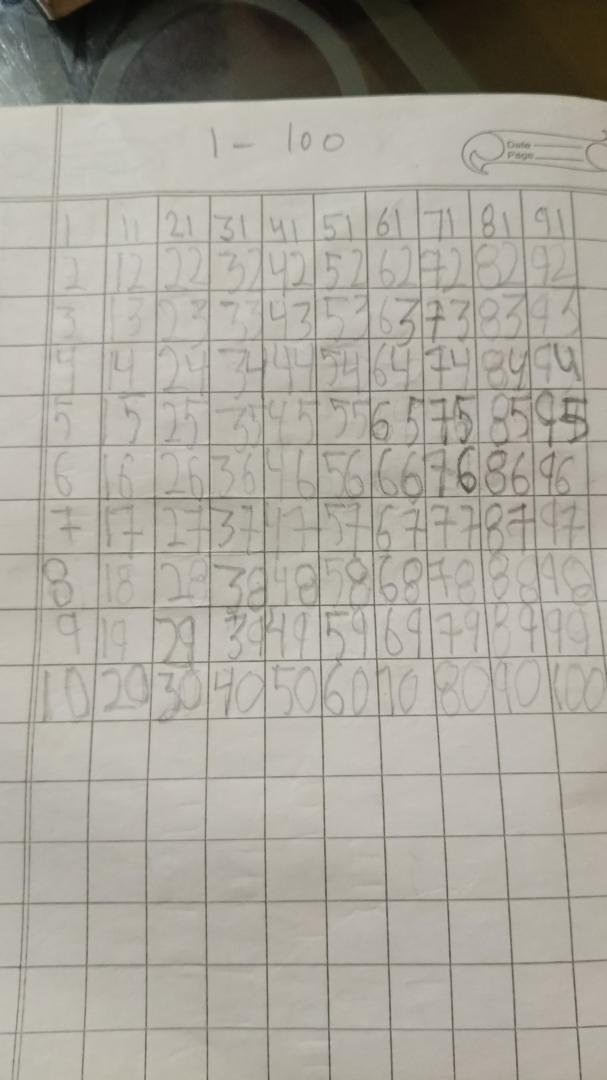 1 - 100
Date
Page
1 11 21 31 41 51 61 71 81 91
2 12 22 32 42 52 62 72 82 92
3 13 23 33 43 53 63 73 83 93
4 14 24 34 44 54 64 74 84 94
5 15 25 35 45 55 65 75 85 95
6 16 26 36 46 56 66 76 86 96
7 17 27 37 47 57 67 77 87 97
8 18 28 38 48 58 68 78 88 98
9 19 29 39 49 59 69 79 89 99
10 20 30 40 50 60 70 80 90 100